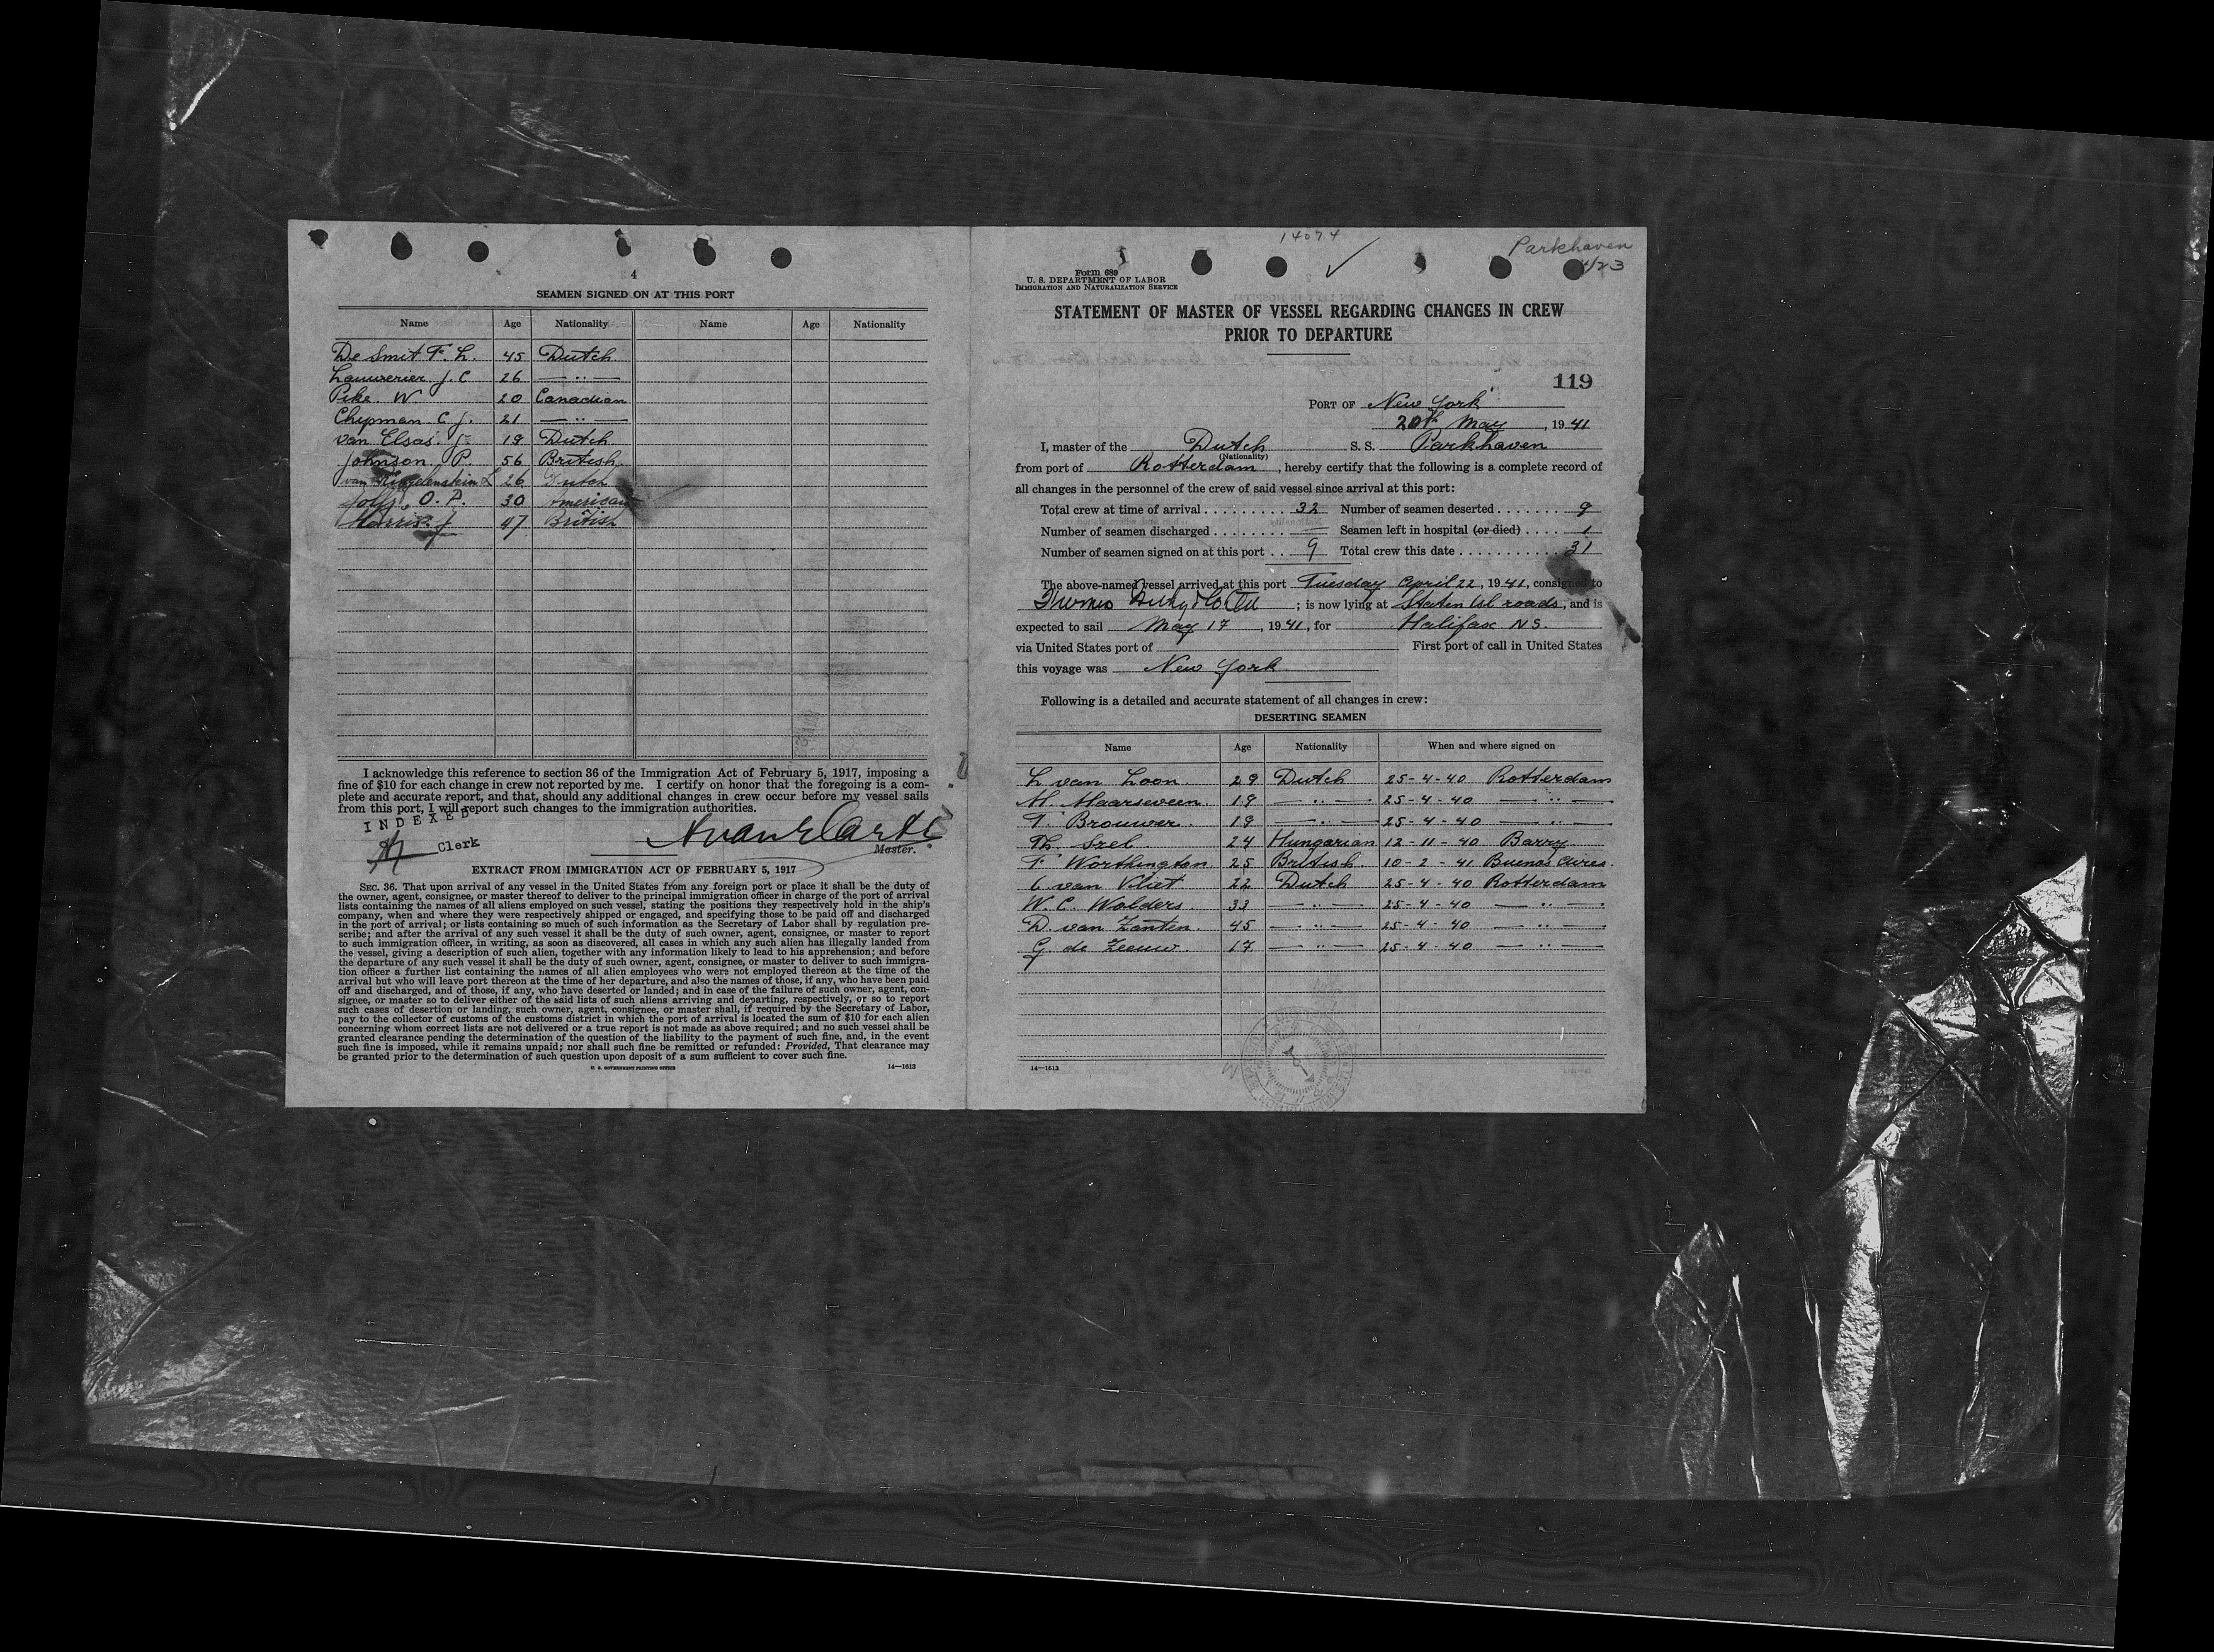 4
SEAMEN SIGNED ON AT THIS PORT
Name Age Nationality Name Age Nationality
De Smit F. L. 45 Dutch
Lauwerier J. C 26 — ·· —
Pike W 20 Canadian
Chipman C J. 21 — ·· —
van Elsas J 19 Dutch
Johnson P. 56 British
van 26 Dutch
O. P. 30 American
Harris J 47 British
I acknowledge this reference to section 36 of the Immigration Act of February 5, 1917, imposing a
fine of $10 for each change in crew not reported by me. I certify on honor that the foregoing is a com-
plete and accurate report, and that, should any additional changes in crew occur before my vessel sails
from this port, I will report such changes to the immigration authorities.
INDEXED
Clerk
Master.
EXTRACT FROM IMMIGRATION ACT OF FEBRUARY 5, 1917
SEC. 36. That upon arrival of any vessel in the United States from any foreign port or place it shall be the duty of
the owner, agent, consignee, or master thereof to deliver to the principal immigration officer in charge of the port of arrival
lists containing the names of all aliens employed on such vessel, stating the positions they respectively hold in the ship's
company, when and where they were respectively shipped or engaged, and specifying those to be paid off and discharged
in the port of arrival; or lists containing so much of such information as the Secretary of Labor shall by regulation pre-
scribe; and after the arrival of any such vessel it shall be the duty of such owner, agent, consignee, or master to report
to such immigration officer, in writing, as soon as discovered, all cases in which any such alien has illegally landed from
the vessel, giving a description of such alien, together with any information likely to lead to his apprehension; and before
the departure of any such vessel it shall be the duty of such owner, agent, consignee, or master to deliver to such immigra-
tion officer a further list containing the names of all alien employees who were not employed thereon at the time of the
arrival but who will leave port thereon at the time of her departure, and also the names of those, if any, who have been paid
off and discharged, and of those, if any, who have deserted or landed; and in case of the failure of such owner, agent, con-
signee, or master so to deliver either of the said lists of such aliens arriving and departing, respectively, or so to report
such cases of desertion or landing, such owner, agent, consignee, or master shall, if required by the Secretary of Labor,
pay to the collector of customs of the customs district in which the port of arrival is located the sum of $10 for each alien
concerning whom correct lists are not delivered or a true report is not made as above required; and no such vessel shall be
granted clearance pending the determination of the question of the liability to the payment of such fine, and, in the event
such fine is imposed, while it remains unpaid; nor shall such fine be remitted or refunded: Provided, That clearance may
be granted prior to the determination of such question upon deposit of a sum sufficient to cover such fine.
U. S. GOVERNMENT PRINTING OFFICE 14—1613
14074
Parkhaven
4/23
Form 689
U. S. DEPARTMENT OF LABOR
IMMIGRATION AND NATURALIZATION SERVICE
STATEMENT OF MASTER OF VESSEL REGARDING CHANGES IN CREW
PRIOR TO DEPARTURE
119
PORT OF New York
20th May, 1941
I, master of the Dutch S. S. Parkhaven
(Nationality)
from port of Rotterdam, hereby certify that the following is a complete record of
all changes in the personnel of the crew of said vessel since arrival at this port:
Total crew at time of arrival 32 Number of seamen deserted 9
Number of seamen discharged — Seamen left in hospital (or died) 1
Number of seamen signed on at this port 9 Total crew this date 31
The above-named vessel arrived at this port Tuesday April 22, 1941, consigned to
; is now lying at Staten Isl roads, and is
expected to sail May 17, 1941, for Halifax N.S.
via United States port of First port of call in United States
this voyage was New York
Following is a detailed and accurate statement of all changes in crew:
DESERTING SEAMEN
Name Age Nationality When and where signed on
L van Loon 29 Dutch 25-4-40 Rotterdam
M. Maarseveen 19 — ·· — 25-4-40 — ·· —
T. Brouwer 19 — ·· — 25-4-40 — ·· —
Th. Szel 24 Hungarian 12-11-40 Barry
F Worthington 25 British 10-2-41 Buenos Aires
C van Vliet 22 Dutch 25-4-40 Rotterdam
W. C. Wolders 33 — ·· — 25-4-40 — ·· —
D. van Zanten 45 — ·· — 25-4-40 — ·· —
G. de Zeeuw 17 — ·· — 25-4-40 — ·· —
14—1613